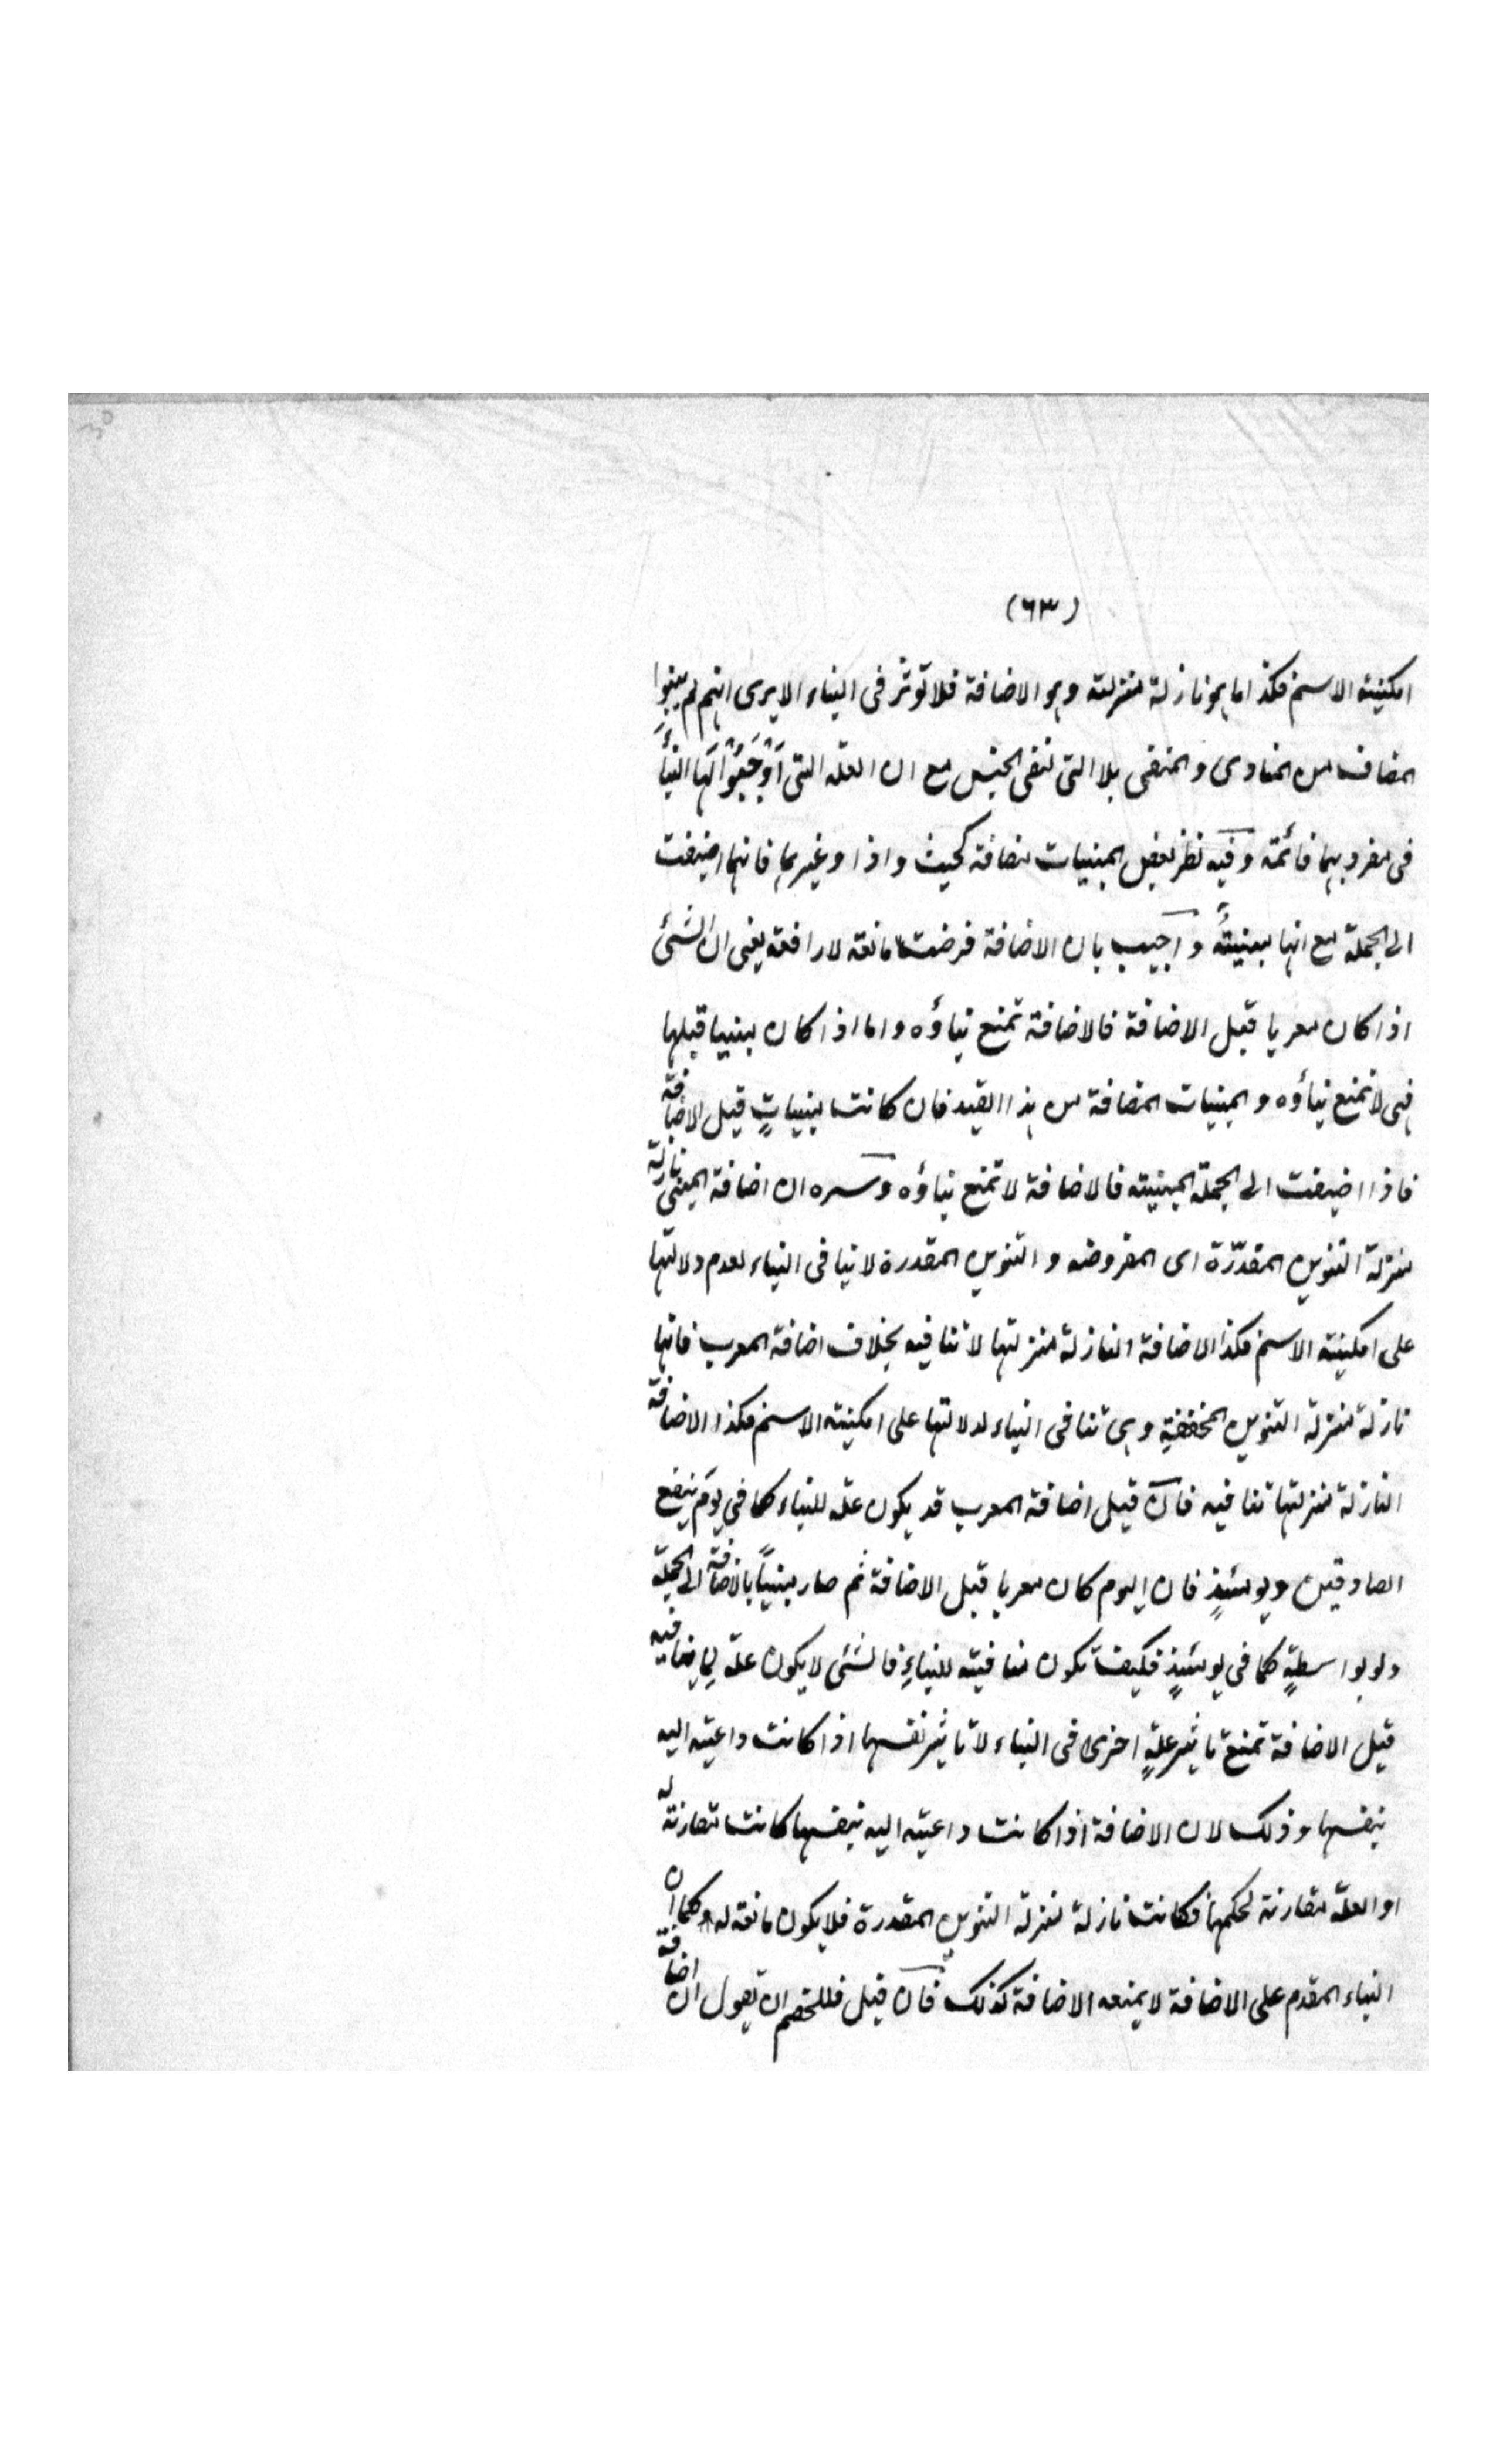 (٦٣)
امكنية الاسم فكذا ما هو نازلة منزلته وهو الاضافة فلا تؤثر فى البناء الا يرى انهم لم يبنوا
المضاف من المنادى والمنفى بلا التى لنفى الجنس مع ان العلة التى اَوْجَبُوْا لَهَا البناءَ
فى مفرديهما قائمة وفيه نظر لبعض المبنيات مضافة كحيث واذا وغيرهما فانها اضيفت
الى الجملة مع انها مبنيةً واجيب بان الاضافة فرضت مانعة لا رافعة يعنى ان الشئ
اذا كان معربا قبل الاضافة فالاضافة تمنع بناؤه واما اذا كان مبنيا قبلها
فهى لا تمنع بناؤه والمبنيات المضافة من هذا القيد فان كانت مبنياتٍ قبل الاضافة
فاذا اضيفت الى الجملة المبنية فالاضافة لا تمنع بناؤه وسره ان اضافة المبنى نازلة
منزلة التنوين المقدّرة اى المفروضه والتنوين المقدرة لا ينافى البناء لعدم دلالتها
على امكنية الاسم فكذا الاضافة النازلة منزلتها لا تنافيه بخلاف اضافة المعرب فانها
نازلة منزلة التنوين المخففةِ وهى تنافى البناء لدلالتها على امكنية الاسم فكذا الاضافة
النازلة منزلتها تنافيه فان قيل اضافة المعرب قد يكون علة للبناء كما فى يومَ ينفع
الصادقين ويومئذٍ فان اليوم كان معربا قبل الاضافة ثم صار مبنيًّا بالاضافة الى الجملة
ولو بواسطةٍ كما فى يومئذٍ فكيف تكون منافية للبناءِ فالشئ لا يكون علة لِما ينافيه
قيل الاضافة تمنع تاثير علةٍ اخرى فى البناء لا تاثير نفسها اذا كانت داعية اليه
بنفسها وذلك لان الاضافة اذا كانت داعية اليه بنفسها كانت مقارنة له
او العلة مقارنة لحكمها فكانت نازلة منزلة التنوين المقدرة فلا يكون مانعة له وكما ان
البناء المقدم على الاضافة لا يمنعه الاضافة كذلك فان قيل فللخصم ان يقول ان اضافة